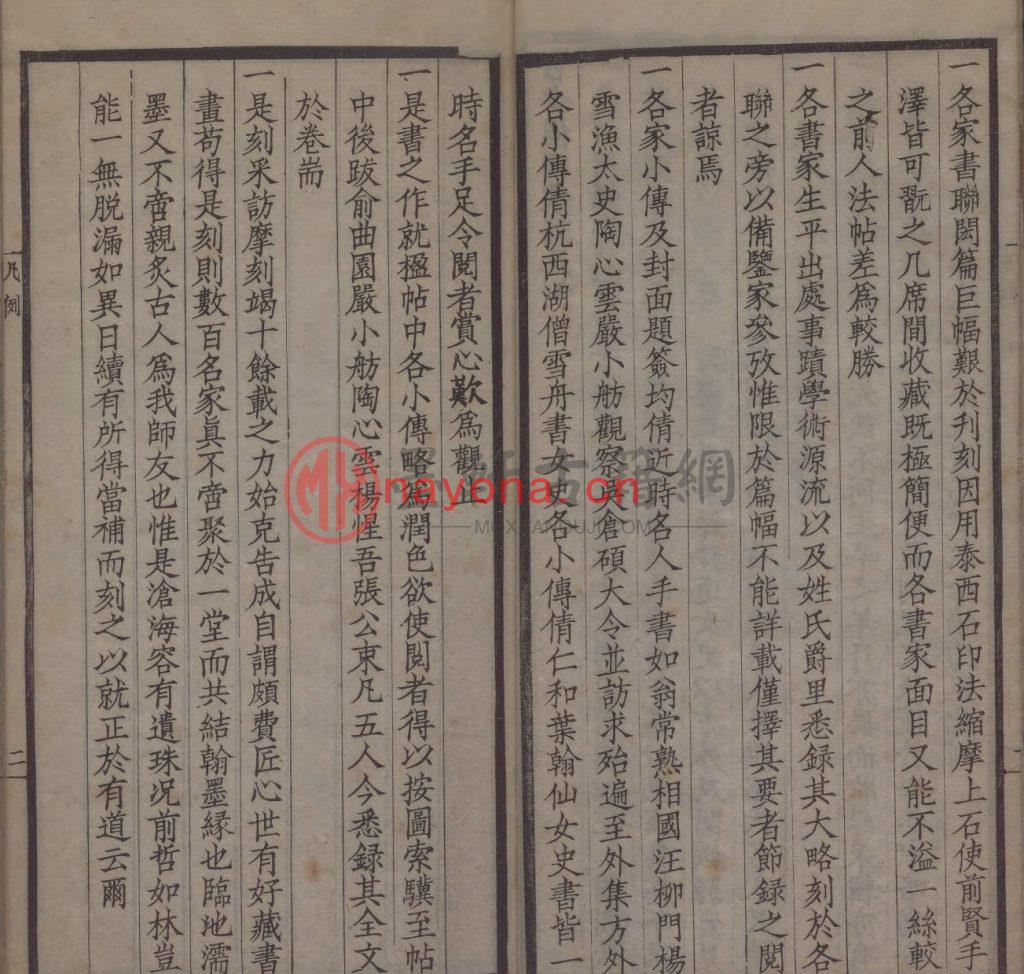 一各家書聯閎篇巨幅艱於刋刻因用泰西石印法縮摩上石使前賢手
澤皆可翫之几席間收藏既極簡便而各書家面目又能不溢一絲較
之前人法帖差爲較勝
一各書家生平出處事蹟學術源流以及姓氏爵里悉録其大略刻於各
聯之旁以備鑒家參攷惟限於篇幅不能詳載僅擇其要者節録之閱
者諒焉
一各家小傳及封面題簽均倩近時名人手書如翁常熟相國汪柳門楊
雪漁太史陶心雲嚴小舫觀察吳倉碩大令並訪求殆遍至外集方外
各小傳倩杭西湖僧雪舟書女史各小傳倩仁和葉翰仙女史書皆一
時名手足令閱者賞心歎爲觀止
一是書之作就楹帖中各小傳略爲潤色欲使閱者得以按圖索驥至帖
中後跋俞曲園嚴小舫陶心雲楊惺吾張公束凡五人今悉録其全文
於卷耑
一是刻采訪摩刻竭十餘載之力始克告成自謂頗費匠心世有好藏書
畫苟得是刻則數百名家眞不啻聚於一堂而共結翰墨緣也臨池濡
墨又不啻親炙古人爲我師友也惟是滄海容有遺珠况前哲如林豈
能一無脱漏如異日續有所得當補而刻之以就正於有道云爾
凡例
二
nayona.cn
MOXUANGUJI.COM